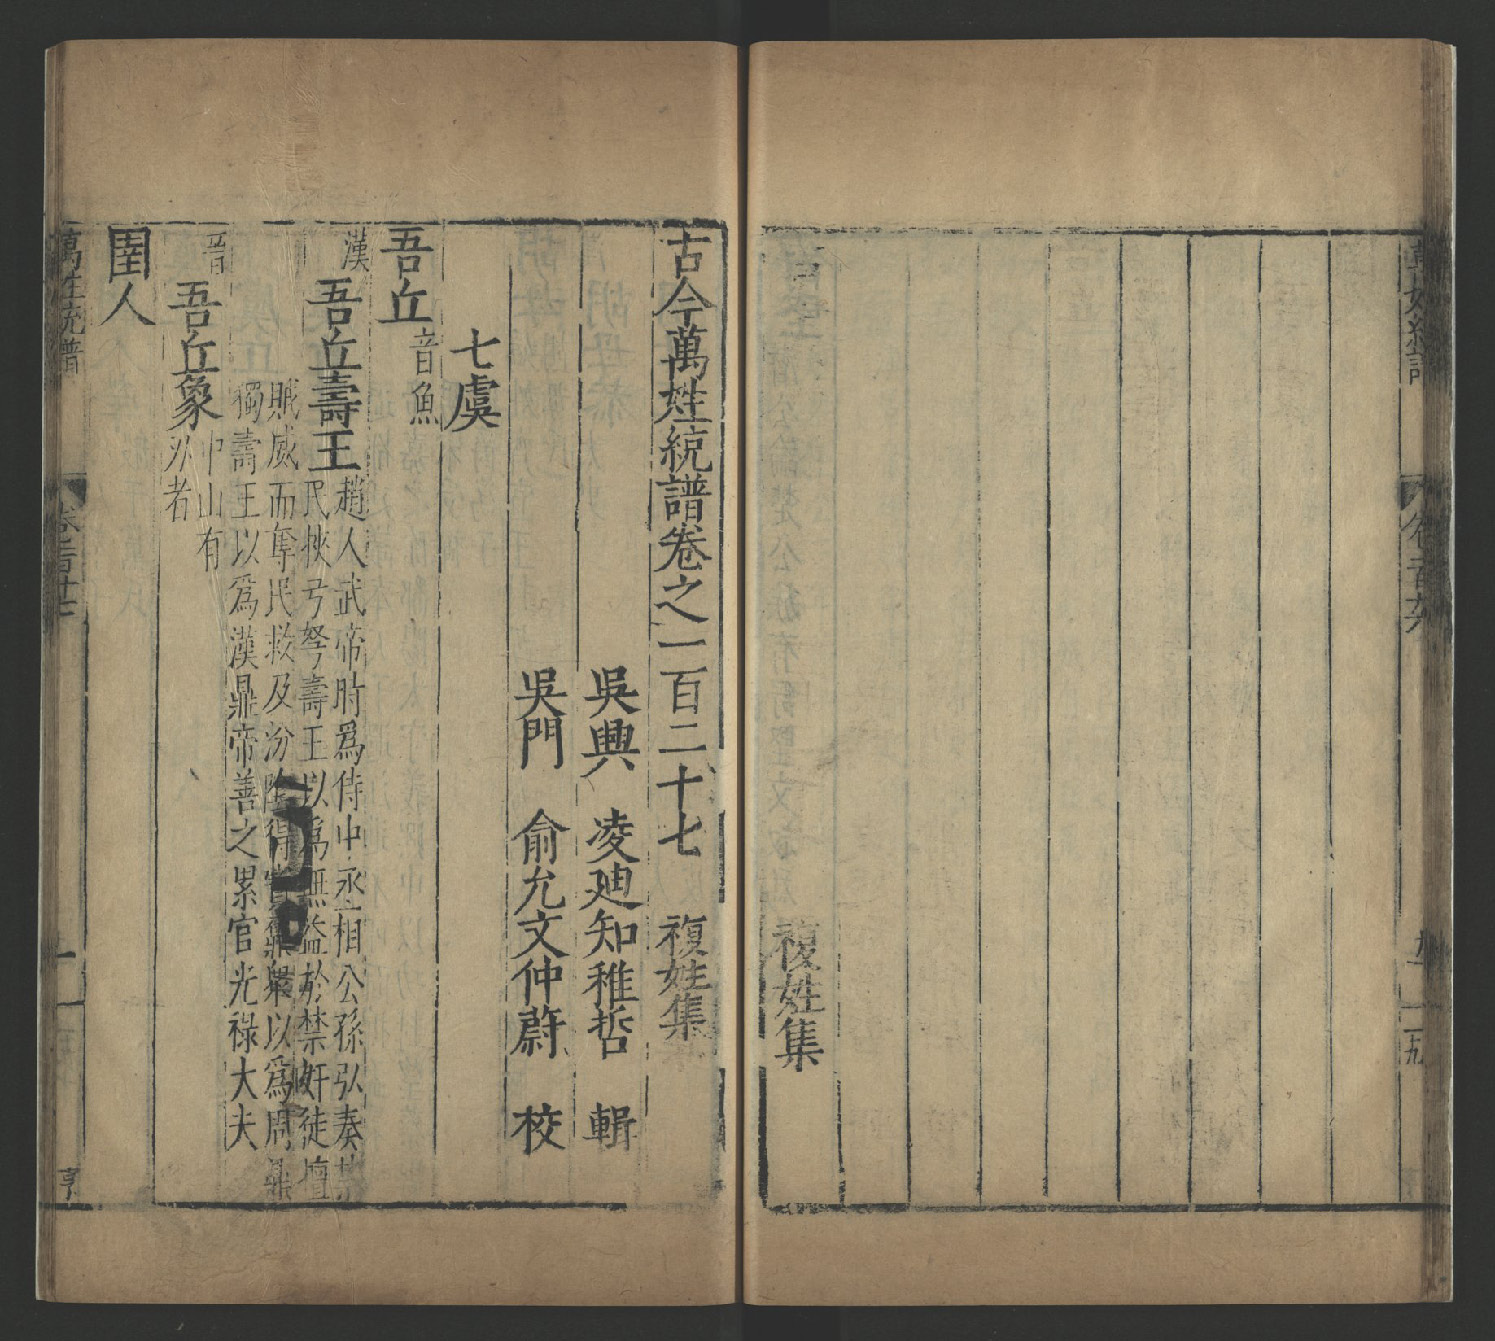 複姓集
古今萬姓統譜卷之一百二十七　複姓集
吳興　凌迪知稚哲　輯
吳門　俞允文仲蔚　校
七虞
吾丘音魚
漢　吾丘壽王趙人武帝時爲侍中丞相公孫弘奏禁
民挾弓弩壽王以爲無益於禁奸徒擅
賊威而奪民救及汾陰得寶鼎衆以爲周鼎
獨壽王以爲漢鼎帝善之累官光祿大夫
晋　吾丘象中山有
圉人
萬姓統譜